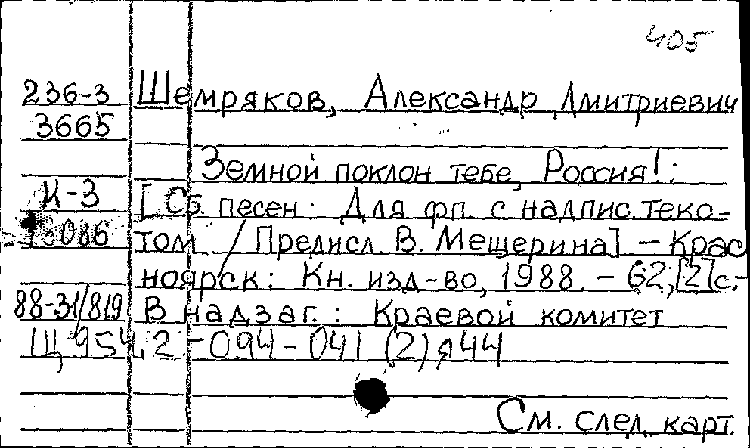 405
236-3 Шемряков, Александр Дмитриевич
3665
Земной поклон тебе, Россия!:
К-3 [Сб. песен: Для фп. с надпис. текс-
13086 том / Предисл. В. Мещерина] – Крас
ноярск: Кн. изд-во, 1988. – 62,[2]с.-
88-31/819 В надзаг.: Краевой комитет
Щ954,2-094-041(2)я44
См. след. карт.